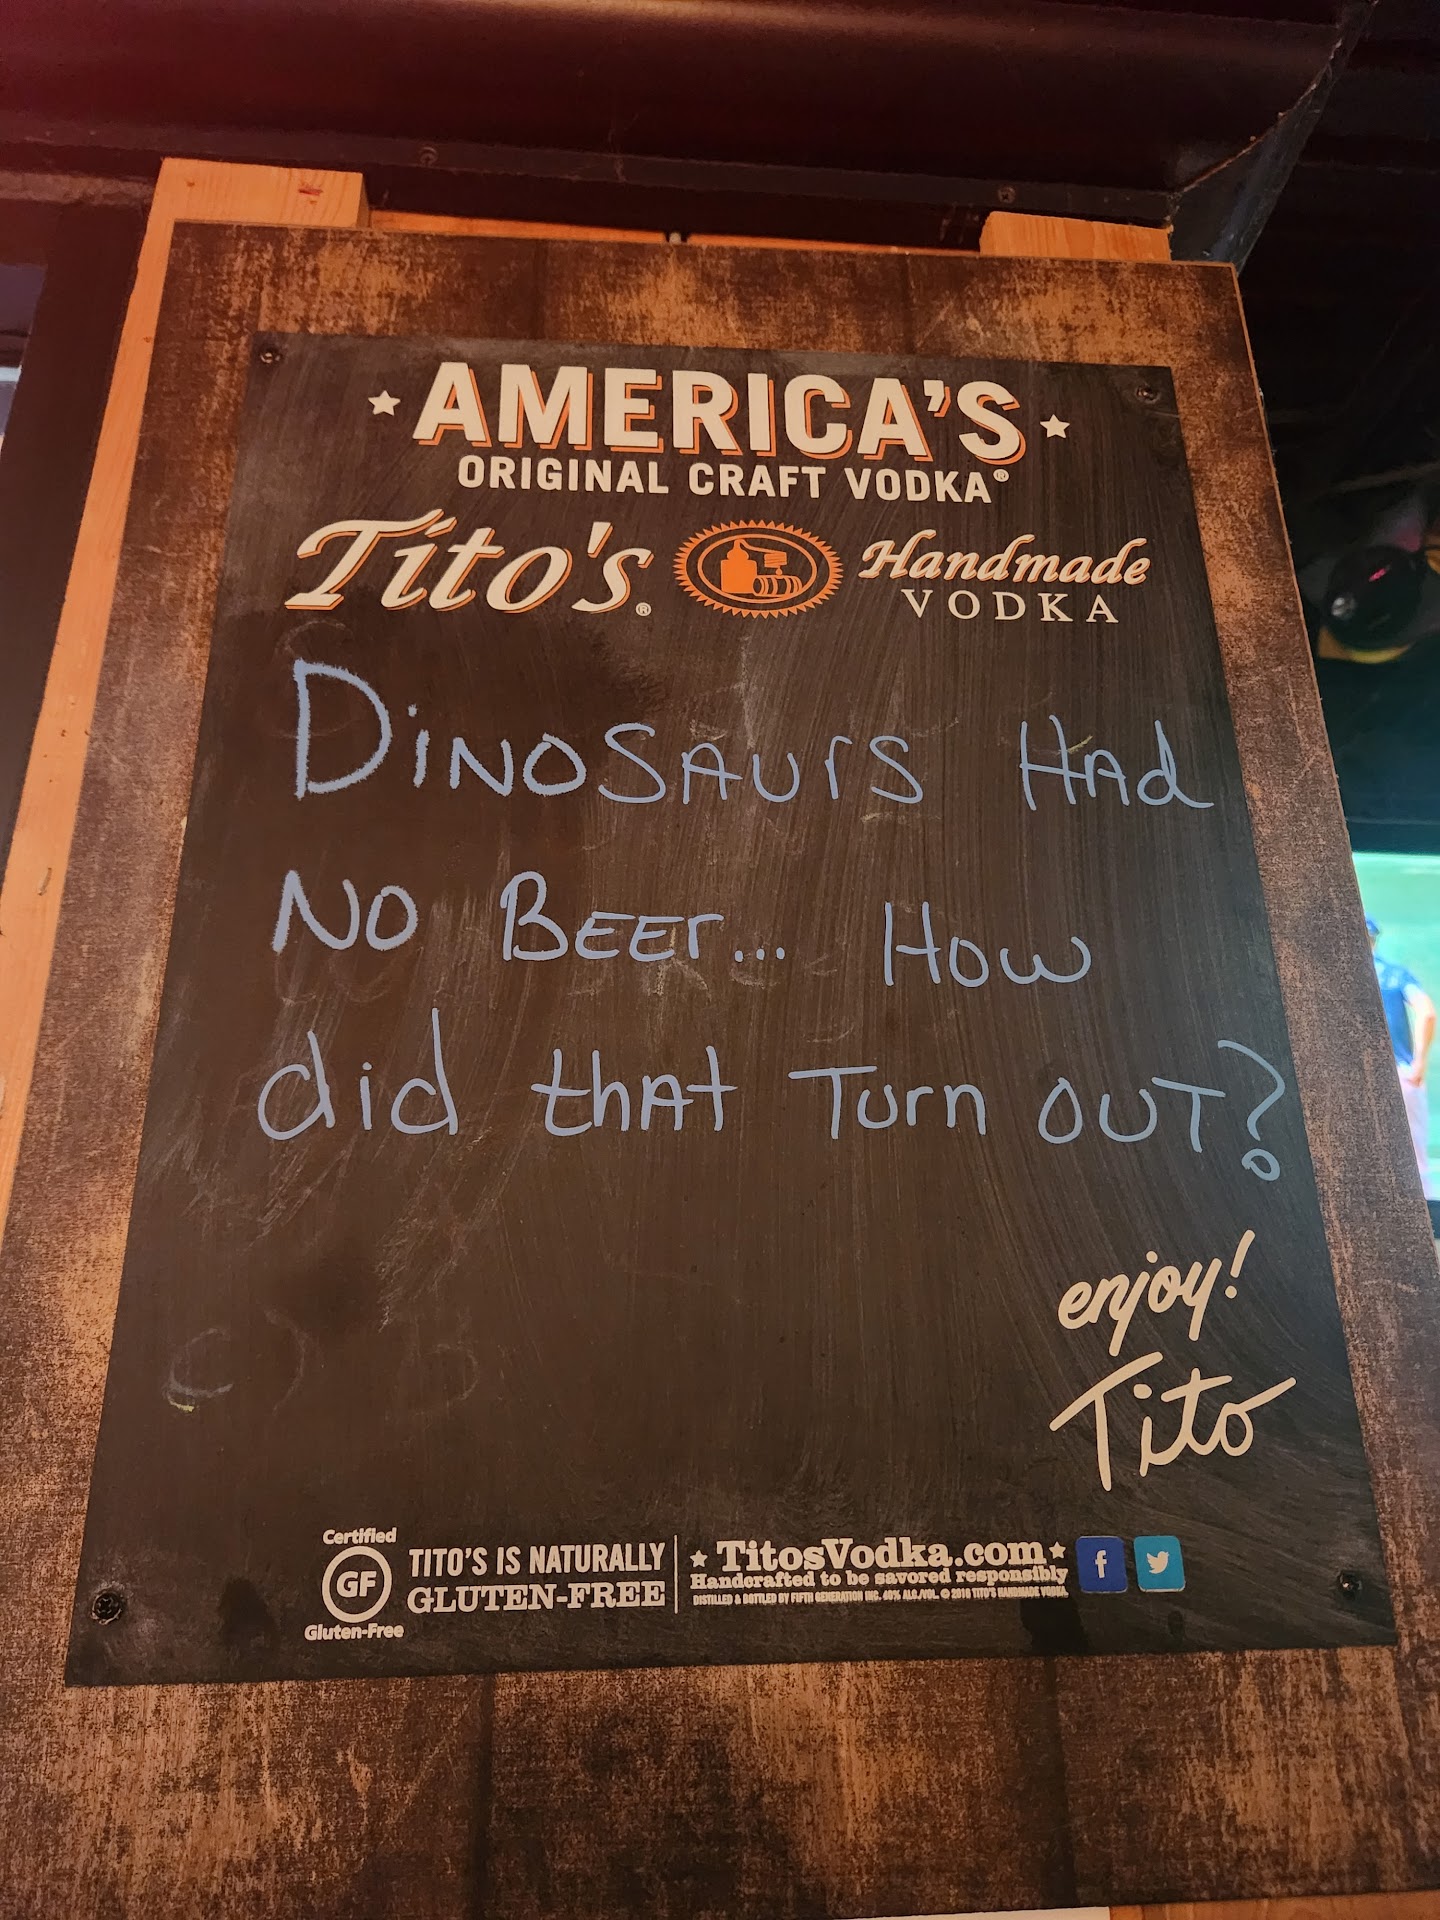 AMERICA'S
ORIGINAL CRAFT VODKA®
Tito's® Handmade
VODKA
DINOSAUrS HAd
NO BEEr... HOW
did thAt Turn OUT?
enjoy!
Tito
Certified
GF
Gluten-Free
TITO'S IS NATURALLY
GLUTEN-FREE
TitosVodka.com
Handcrafted to be savored responsibly
DISTILLED & BOTTLED BY FIFTH GENERATION INC. 40% ALC./VOL. © 2018 TITO'S HANDMADE VODKA.
f